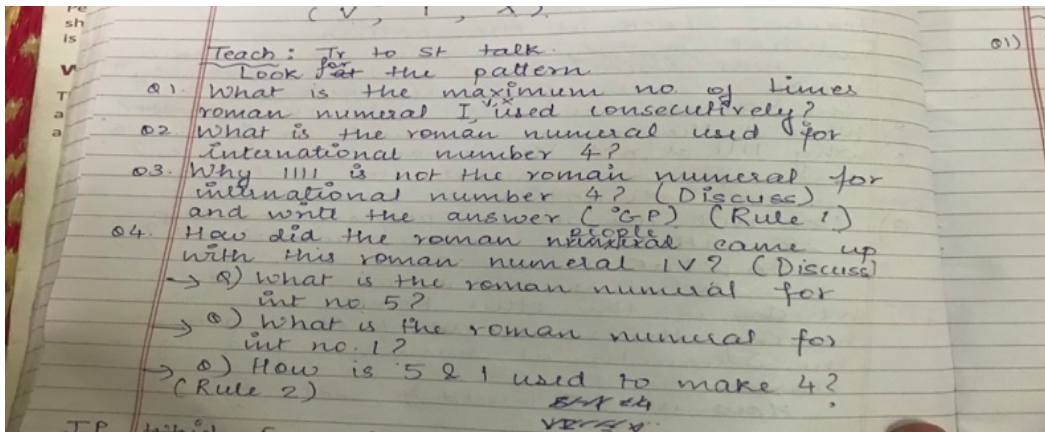 (V, I, X).
Teach : Tr to St talk.
Look for the pattern
Q1. What is the maximum no of times
roman numeral I, V, X used consecutively?
Q2 What is the roman numeral used for
international number 4?
Q3. Why IIII is not the roman numeral for
international number 4? (Discuss)
and write the answer (GP) (Rule 1)
Q4. How did the roman people came up
with this roman numeral IV? (Discuss)
→ Q) What is the roman numeral for
int no. 5?
→ Q) What is the roman numeral for
int no. 1?
→ Q) How is 5 & 1 used to make 4?
(Rule 2)
IP
Q1)
sh
is